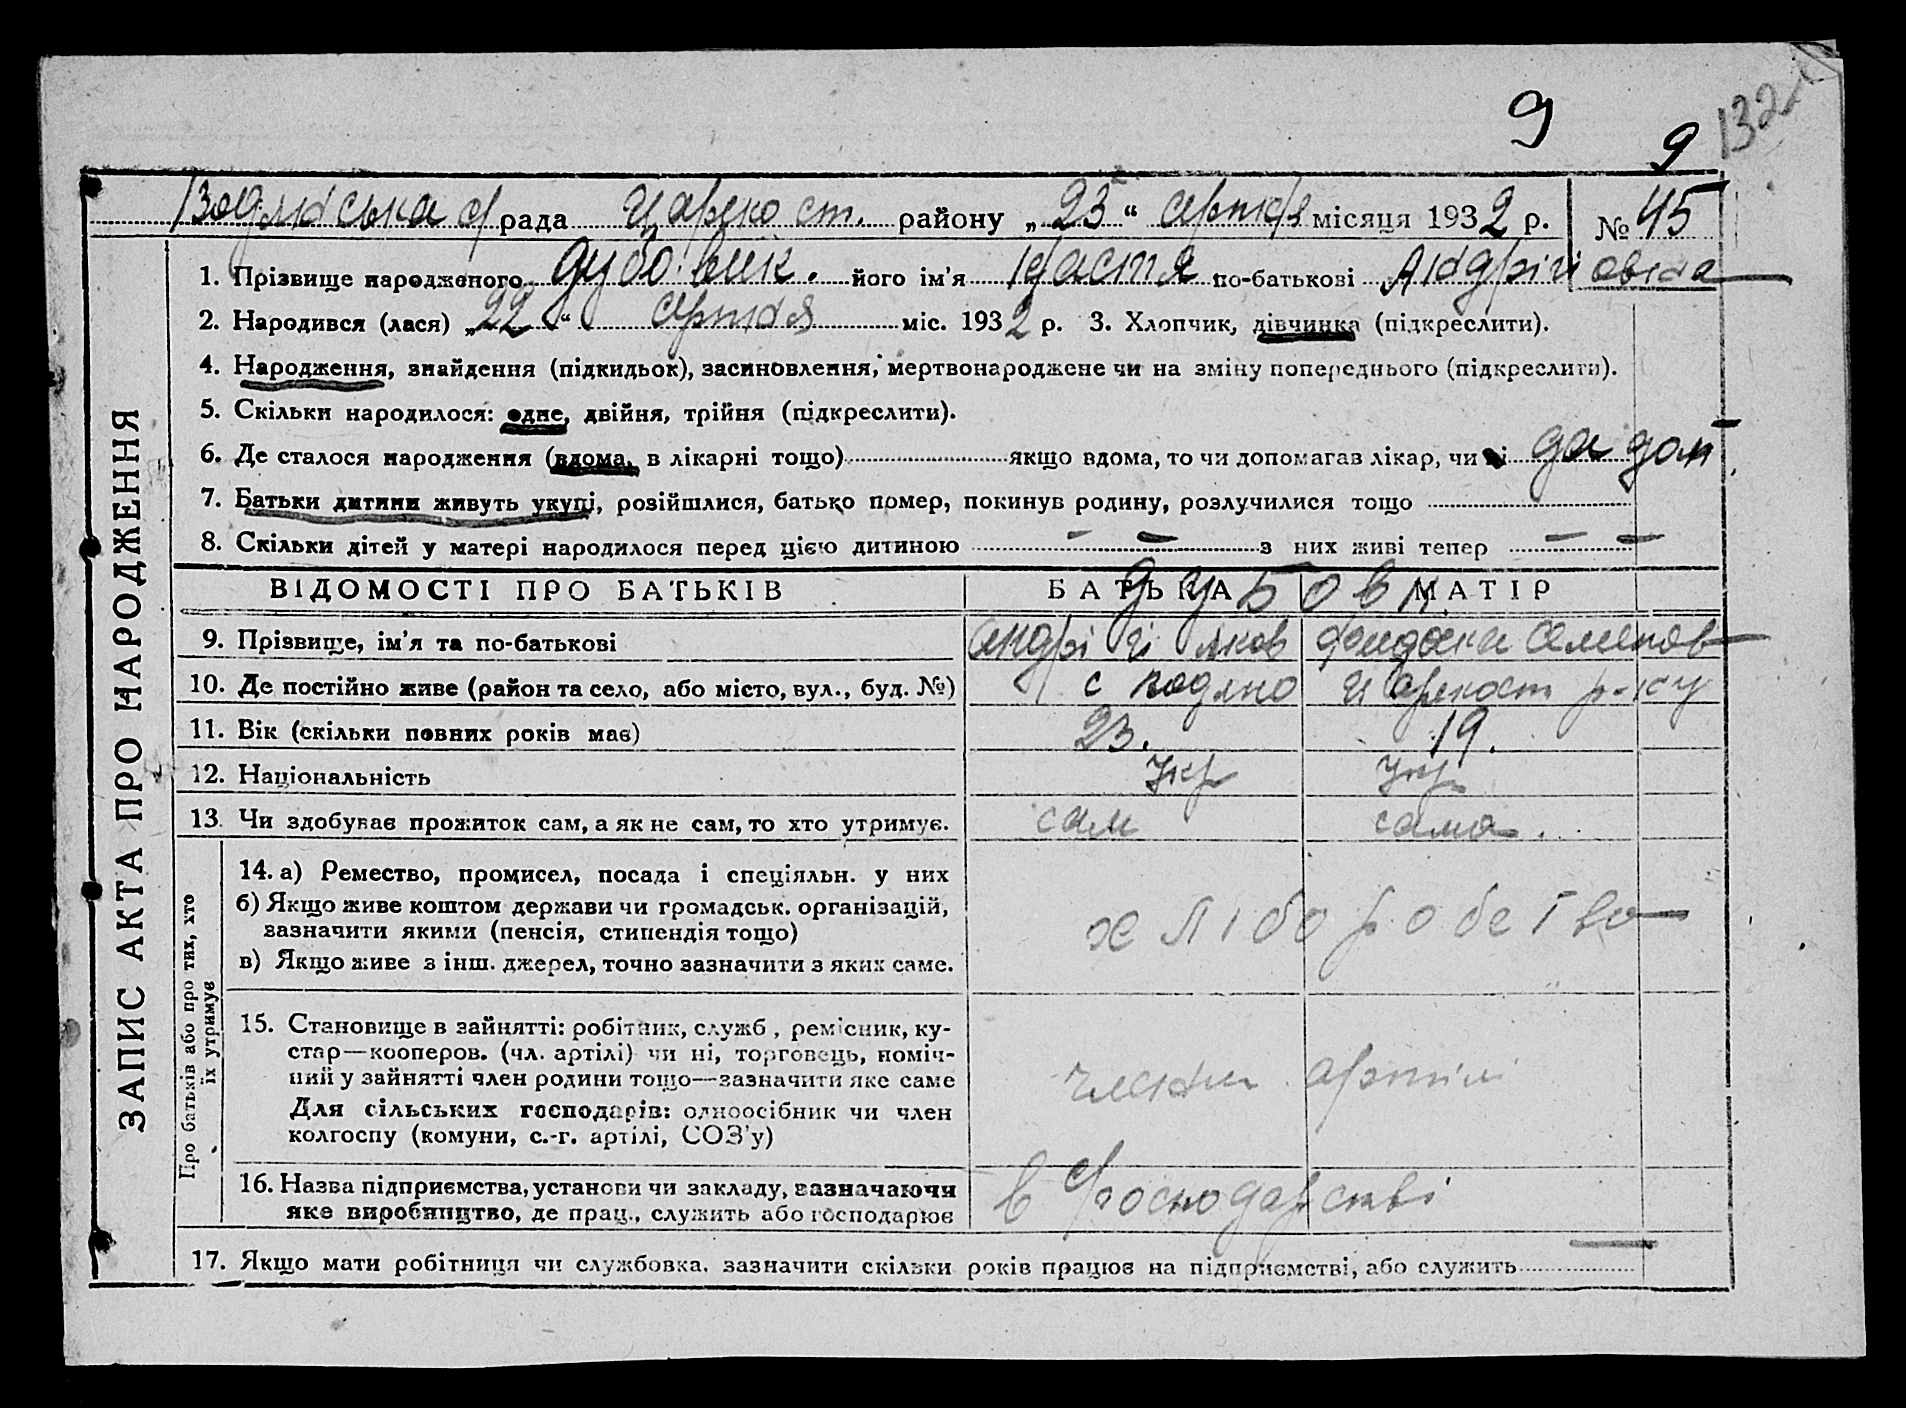 9
9
132
Водянська с/рада Царекост. району „23“ серпня місяця 1932 р. № 45
1. Прізвище народженого Дубовик. його ім’я Настя по-батькові Андріівна
2. Народився (лася) „22“ серпня міс. 1932 р. 3. Хлопчик, дівчинка (підкреслити).
4. Народження, знайдення (підкидьок), засиновлення, мертвонароджене чи на зміну попереднього (підкреслити).
5. Скільки народилося: одне, двійня, трійня (підкреслити).
6. Де сталося народження (вдома, в лікарні тощо) якщо вдома, то чи допомагав лікар, чи ні
7. Батьки дитини живуть укупі, розійшлися, батько помер, покинув родину, розлучилися тощо
8. Скільки дітей у матері народилося перед цією дитиною — — з них живі тепер — —
ВІДОМОСТІ ПРО БАТЬКІВ БАТЬКА МАТІР
Дубови
9. Прізвище, ім’я та по-батькові Андрій Яков Семенов
10. Де постійно живе (район та село, або місто, вул., буд. №) с Водяно Царекост р-ну
11. Вік (скільки повних років має) 23. 19.
12. Національність Укр Укр
13. Чи здобуває прожиток сам, а як не сам, то хто утримує. сам сама.
14. а) Ремество, промисел, посада і спеціяльн. у них
б) Якщо живе коштом держави чи громадськ. організацій,
зазначити якими (пенсія, стипендія тощо)
в) Якщо живе з інш. джерел, точно зазначити з яких саме.
хліборобство
15. Становище в зайнятті: робітник, служб., ремісник, ку-
стар—кооперов. (чл. артілі) чи ні, торговець, поміч-
ний у зайнятті член родини тощо—зазначити яке саме
Для сільських господарів: одноосібник чи член
колгоспу (комуни, с.-г. артілі, СОЗ’у)
члени артіли
16. Назва підприємства, установи чи закладу, зазначаючи
яке виробництво, де прац., служить або господарює
в господарстві
17. Якщо мати робітниця чи службовка, зазначити скільки років працює на підприємстві, або служить —
ЗАПИС АКТА ПРО НАРОДЖЕННЯ
Про батьків або про тих, хто
їх утримує